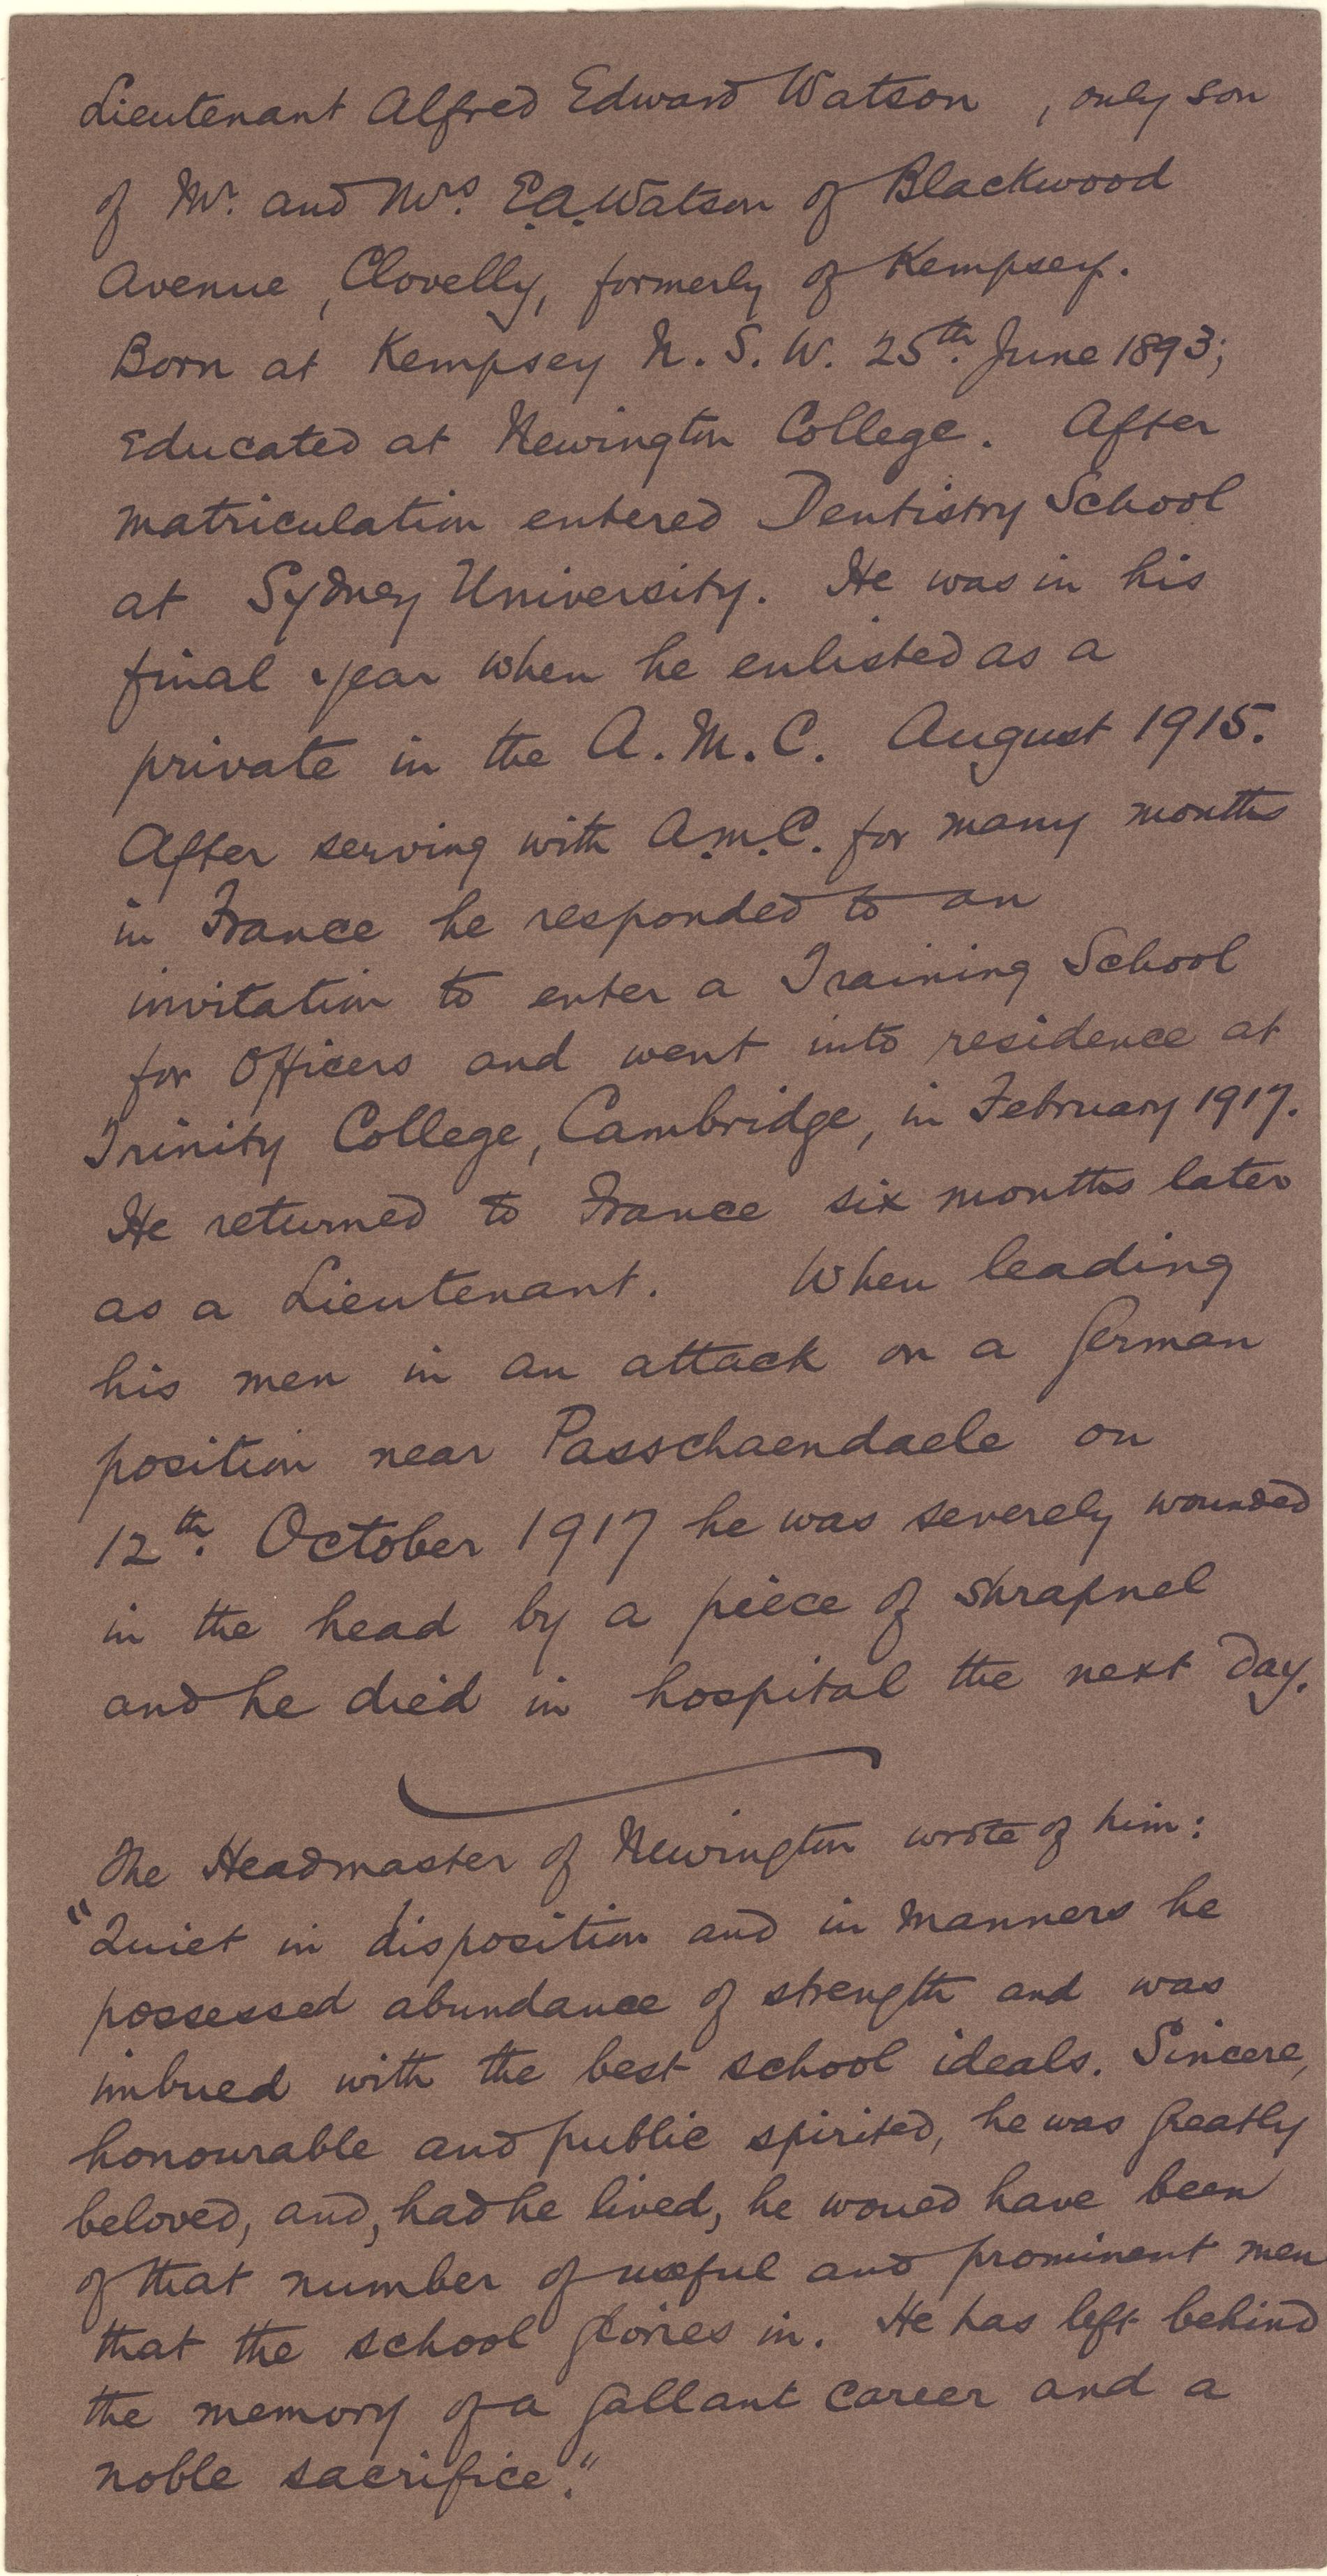 Lieutenant Alfred Edward Watson , only son
of Mr. and Mrs. E.A. Watson of Blackwood
Avenue, Clovelly, formerly of Kempsey.
Born at Kempsey N. S. W. 25th. June 1893;
educated at Newington College. After
matriculation entered Dentistry School
at Sydney University. He was in his
final year when he enlisted as a
private in the A. M. C. August 1915.
After serving with A.M.C. for many months
in France he responded to an
invitation to enter a Training School
for Officers and went into residence at
Trinity College, Cambridge, in February 1917.
He returned to France six months later
as a Lieutenant. When leading
his men in an attack on a German
position near Passchaendaele on
12th. October 1917 he was severely wounded
in the head by a piece of shrapnel
and he died in hospital the next day.
The Headmaster of Newington wrote of him:
"Quiet in disposition and in manners he
possessed abundance of strength and was
imbued with the best school ideals. Sincere,
honourable and public spirited, he was greatly
beloved, and, had he lived, he would have been
of that number of useful and prominent men
that the school glories in. He has left behind
the memory of a gallant career and a
noble sacrifice."